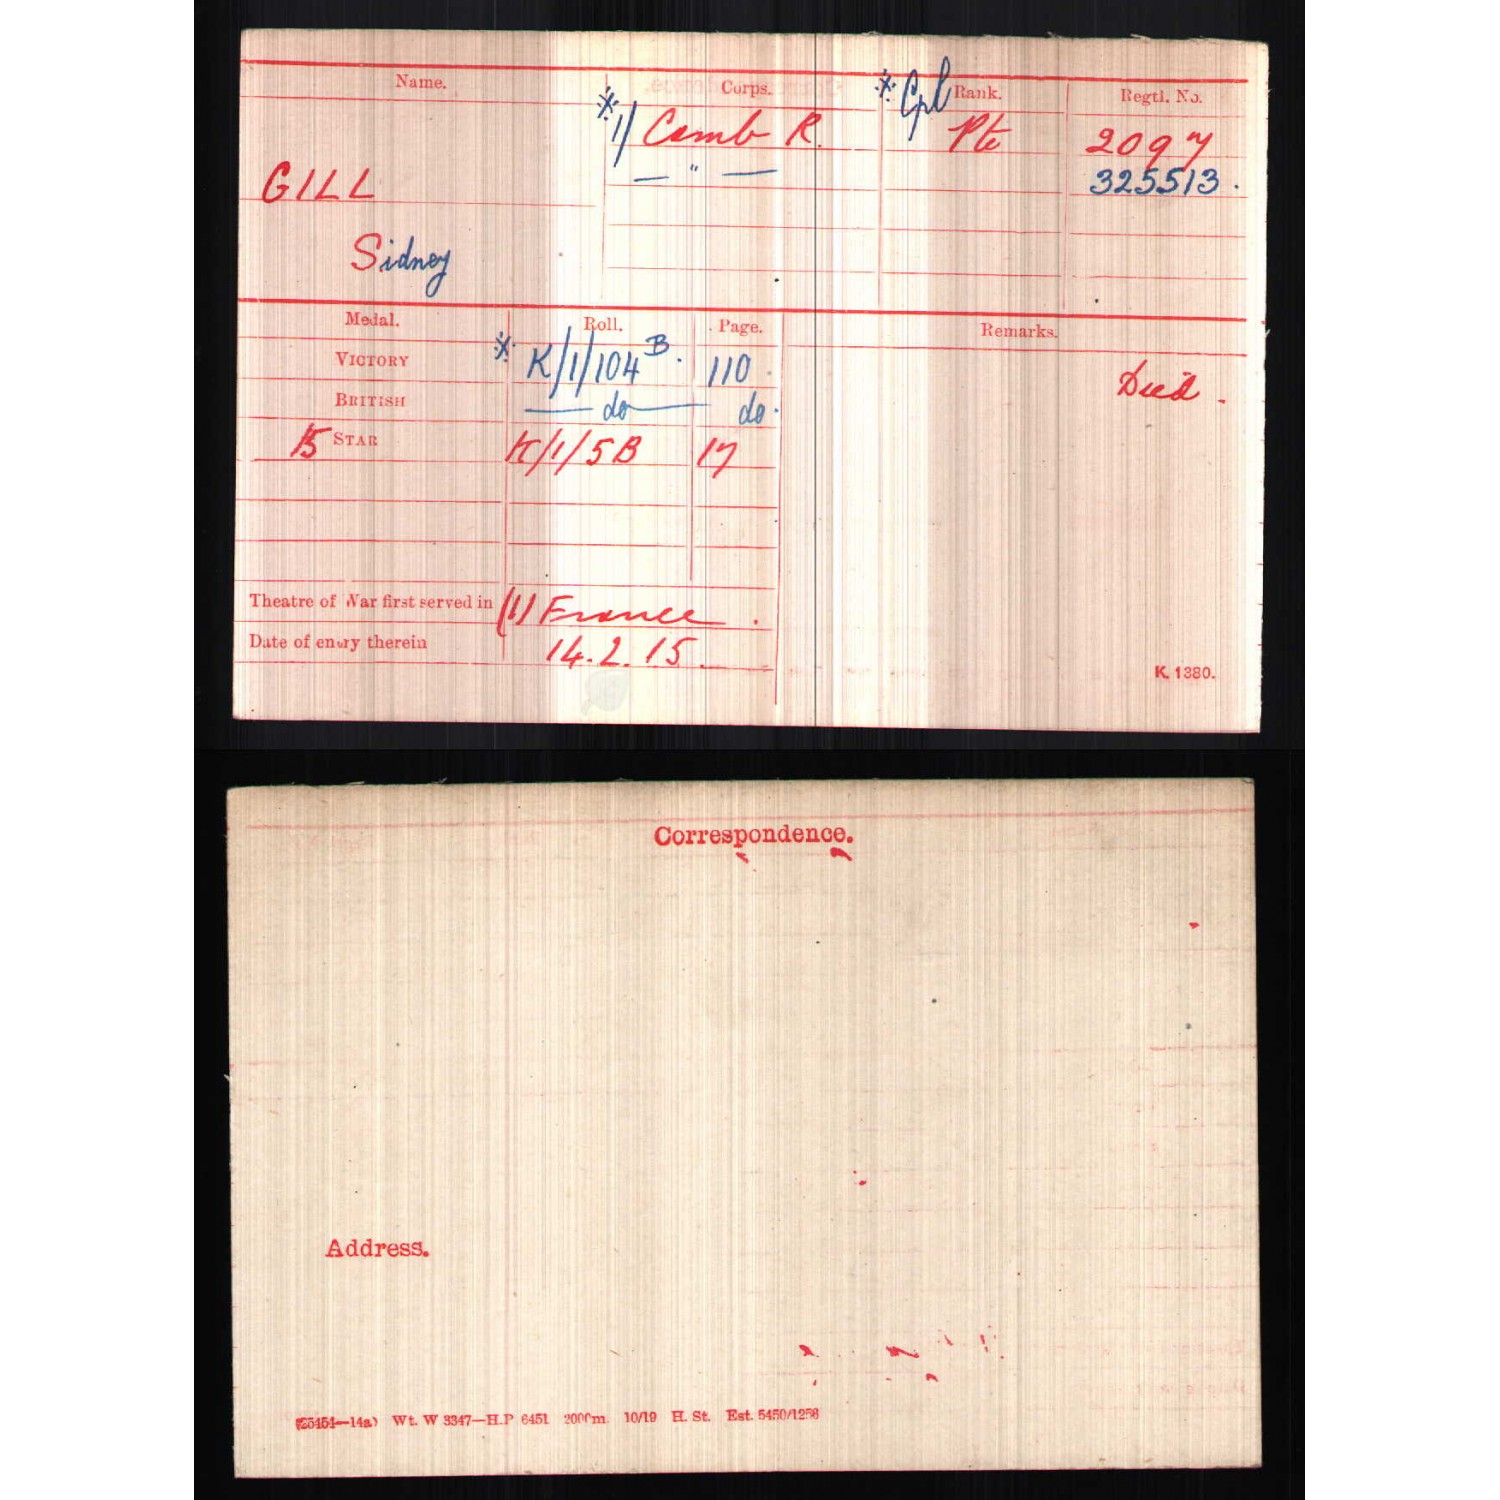 Name. Corps. Rank. Regtl. No.
* 1/ Camb R. * Cpl Pte 2097
— " — 325513.
GILL
Sidney
Medal. Roll. Page. Remarks.
VICTORY * K/1/104 B. 110. Died.
BRITISH — do — do.
15 STAR K/1/5B 17
Theatre of War first served in (1) France.
Date of entry therein 14.2.15.
K. 1380.
Correspondence.
Address.
(25454—14a) Wt. W 3347—H.P 6451 2000m. 10/19 H. St. Est. 5450/1256